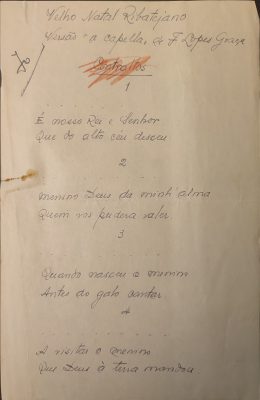 Velho Natal Ribatejano
Versão "a capella" de F. Lopes Graça
Dó
Contraltos
1
É nosso Rei e Senhor
Que do alto céu desceu
2
Menino Deus da minh'alma
Quem vos pudera valer
3
Quando nasceu o menino
Antes do galo cantar
4
A visitar o menino
Que Deus à terra mandou.